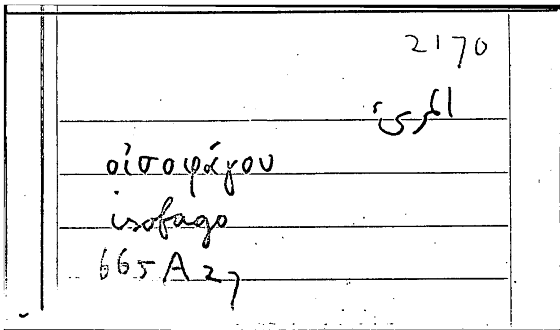 2170
المرئ
οἰσοφάγου
isofago
665 A 27